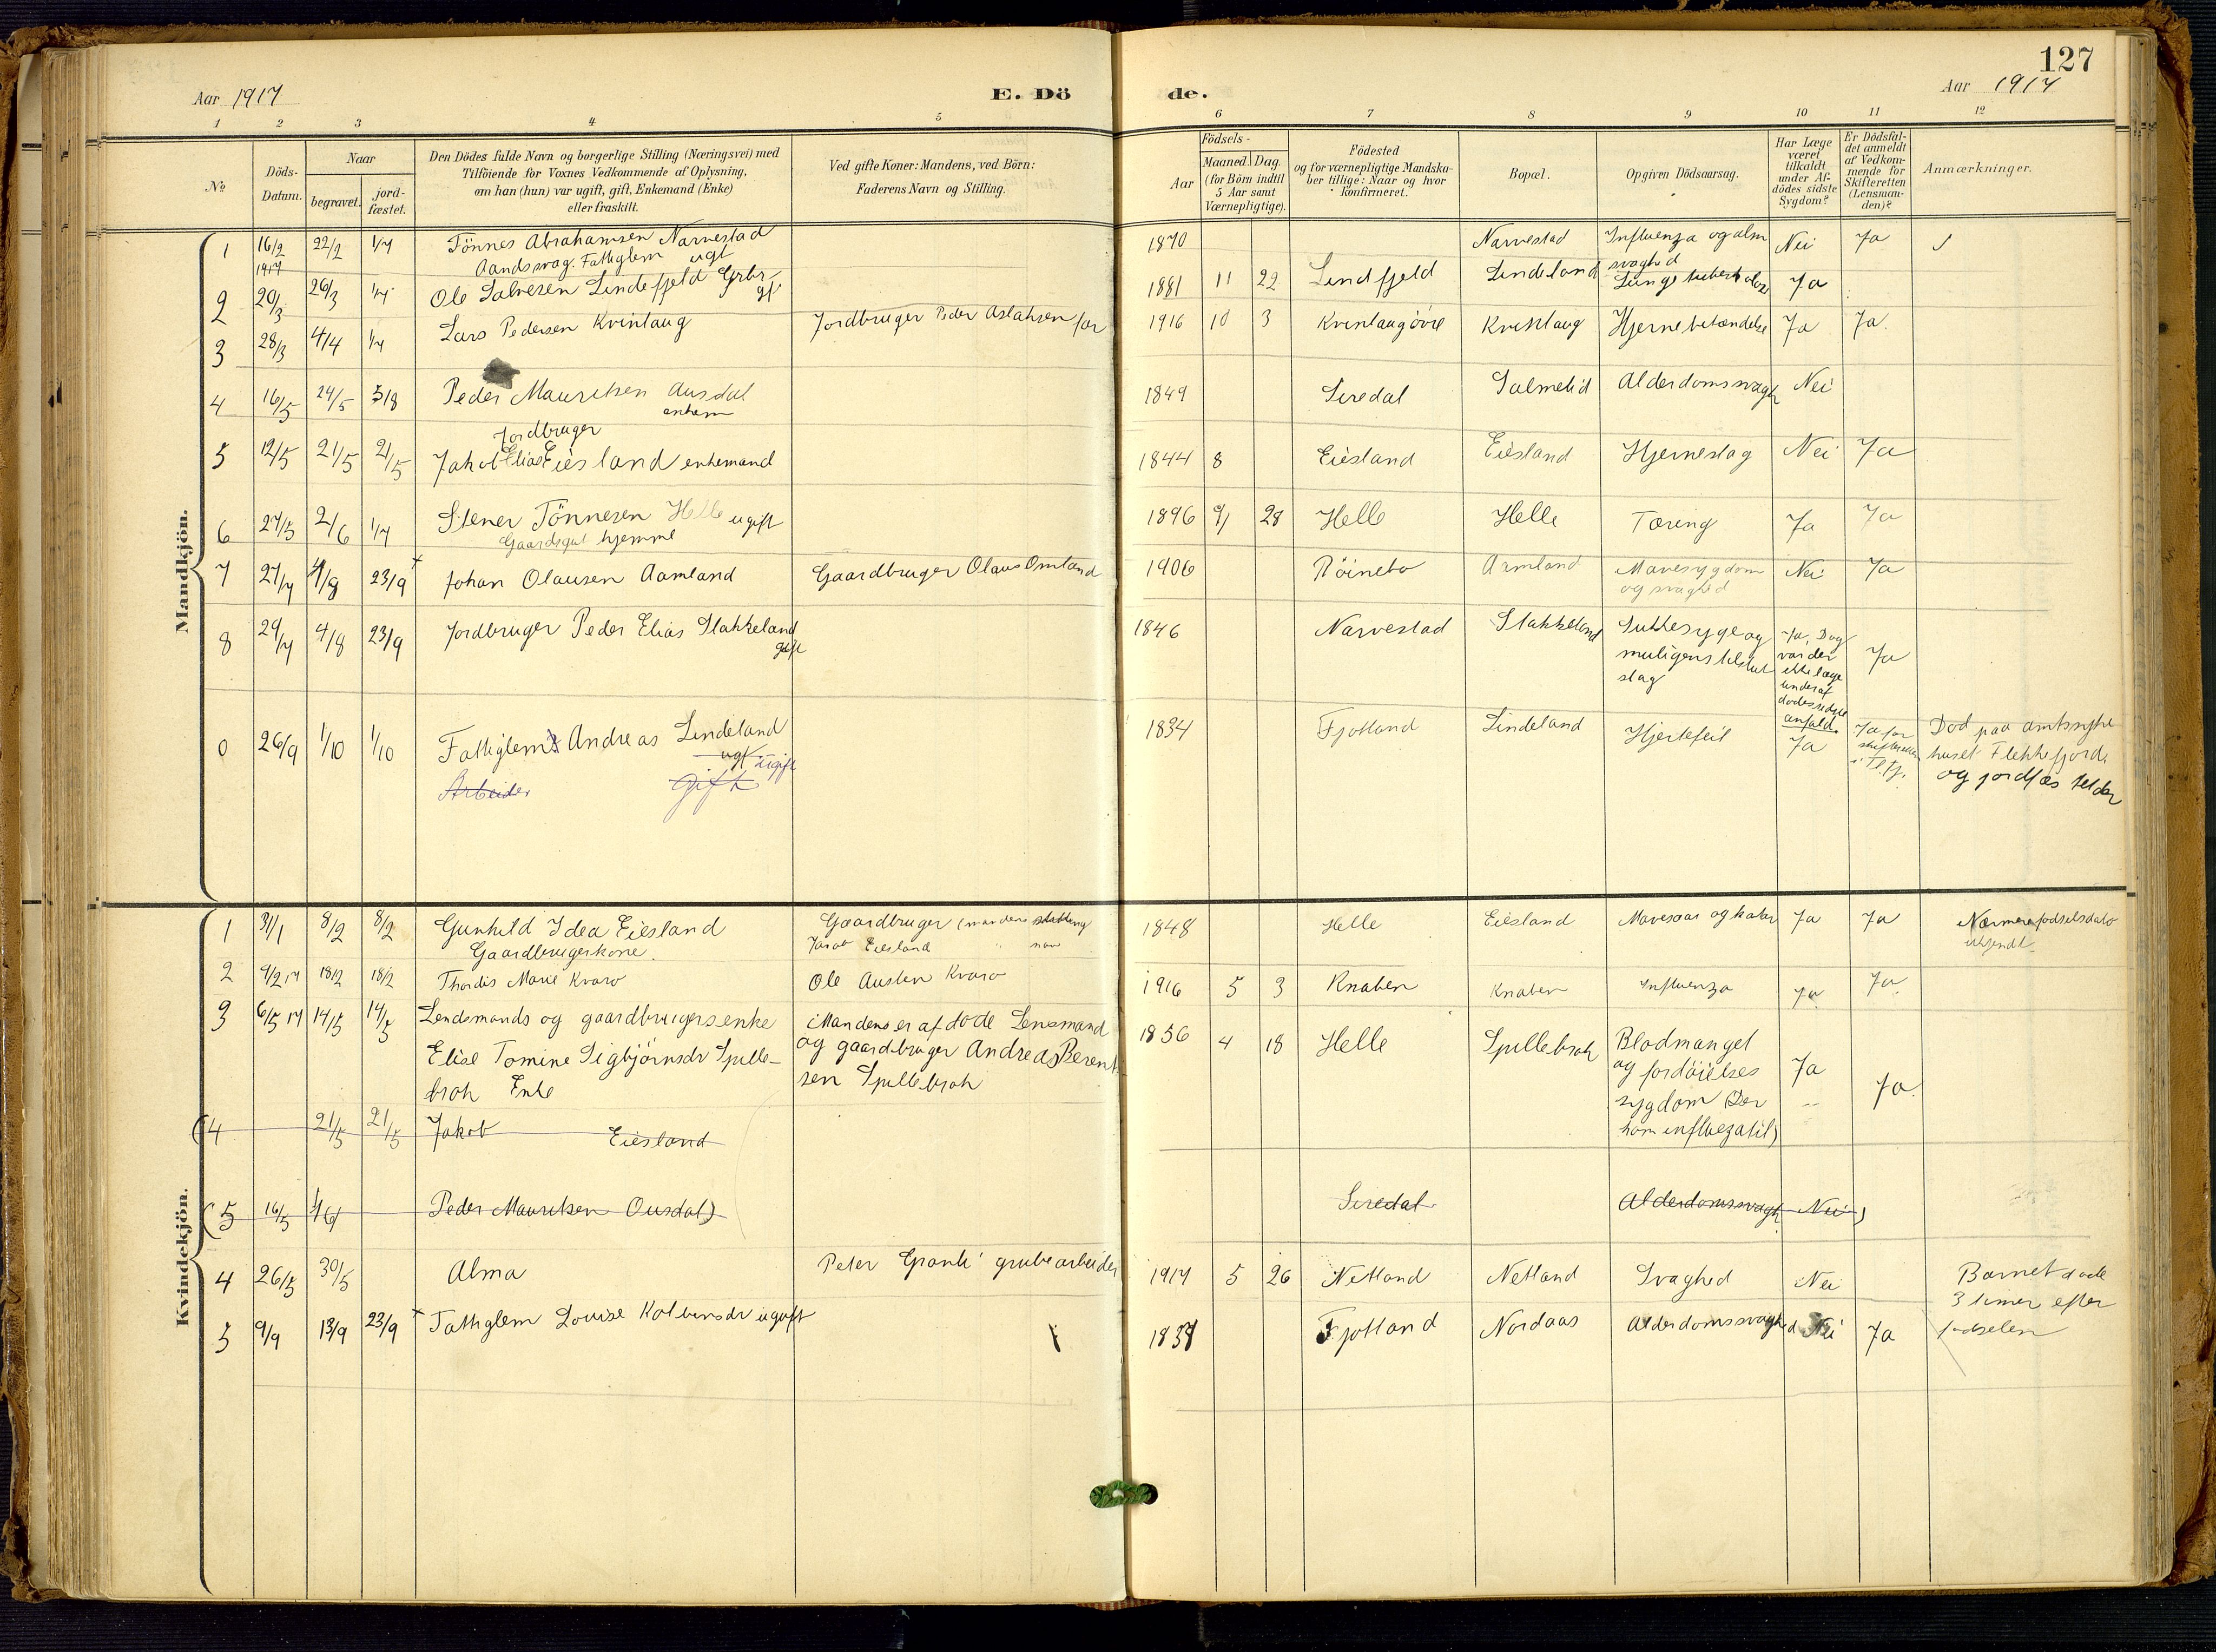 127
Aar 1917
E. Dö
de.
Aar 1917
1 2 3 4 5 6 7 8 9 10 11 12
No
Döds-Datum.
Naar
begravet.
jord-fæstet.
Den Dödes fulde Navn og borgerlige Stilling (Næringsvei) med
Tilföiende for Voxnes Vedkommende af Oplysning,
om han (hun) var ugift, gift, Enkemand (Enke)
eller fraskilt.
Ved gifte Koner: Mandens, ved Börn:
Faderens Navn og Stilling.
Födsels-
Aar
Maaned. Dag.
(for Börn indtil
5 Aar samt
Værnepligtige).
Födested
og for værnepligtige Mandska-
ber tillige: Naar og hvor
konfirmeret.
Bopæl.
Opgiven Dödsaarsag.
Har Læge
været
tilkaldt
under Af-
dödes sidste
Sygdom?
Er Dödsfal-
det anmeldt
af Vedkom-
mende for
Skifteretten
(Lensman-
den)?
Anmærkninger.
Mandkjön.
1 16/2 1917 22/2 1/7 Tönnes Abrahamsen Narvestad 1870 Narvestad Influenza og alm Nei Ja
Aandssvag. Fattiglem ugt svaghed
2 20/3 26/3 1/7 Ole Salvesen Lindefjeld Grbr. gf. 1881 11 22 Lindfjeld Lindeland Lungetuberkulose Ja
3 28/3 4/4 1/7 Lars Pedersen Kvinlaug Jordbruger Peder Aslaksen far 1916 10 3 Kvinlaug övre Kvinlaug Hjernebetændelse Ja Ja.
4 16/5 24/5 5/8 Peder Mauritsen Ausdal 1849 Siredal Salmelid Alderdomssvagh Nei
enkem
Jordbruger
5 12/5 21/5 21/5 Jakob Elias Eiesland enkemand 1844 8 Eiesland Eiesland Hjerneslag Nei Ja
6 27/5 2/6 1/7 Stener Tönnesen Helle ugift 1896 9/ 28 Helle Helle Tæring Ja Ja
Gaardsgut hjemme
7 27/7 4/8 23/9 Johan Olausen Aamland Gaardbruger Olaus Omland 1906 Röinebo Aamland Mavesygdom Nei Ja
og svaghed
8 29/7 4/8 23/9 Jordbruger Peder Elias Stakkeland 1846 Narvestad Stakkeland Sukkesyge og Ja, Dog Ja
gift muligens tilslut var der
slag ikke læge
under af
dödes sidste
anfald.
0 26/9 1/10 1/10 Fattiglem Andreas Lindeland 1834 Fjotland Lindeland Hjertefeil Ja Ja for Död paa amtssyke
ugf ugift huset Flekkefjord
Arbeider gift og jordfæstet der
Kvindekjön.
1 31/1 8/2 8/2 Gunhild Idea Eiesland Gaardbruger (mandens stilling 1848 Helle Eiesland Mavesaar og katar Ja Ja Nærmere födselsdato
Gaardbrugerkone. Jakob Eiesland " navn ukjendt
2 9/2 17 18/2 18/2 Thordis Marie Kvaro Ole Austen Kvaro 1916 5 3 Knaben Knaben Influenza Ja Ja
3 6/5 17 14/5 14/5 Lendsmands og gaardbrugersenke Manden er afdöde Lensmand 1856 4 18 Helle Spillebrok Blodmangel Ja Ja.
Elise Tomine Sigbjörnsdr Spille- og gaardbruger Andreas Berent og fordöielses
brok Enke sen Spillebrok sygdom (Der
kom influeza til)
(4 21/5 21/5 Jakob Eiesland
(5 16/5 1/6 Peder Mauritsen Ousdal) Siredal Alderdomssvagh Nei)
4 26/5 30/5 Alma Peter Granli grubearbeider 1917 5 26 Netland Netland Svaghed Nei Barnet döde
3 timer efter
födselen
5 9/9 13/9 23/9 Fattiglem Louise Kolbensdr ugift 1837 Fjotland Nordaas Alderdomssvaghed Nei Ja